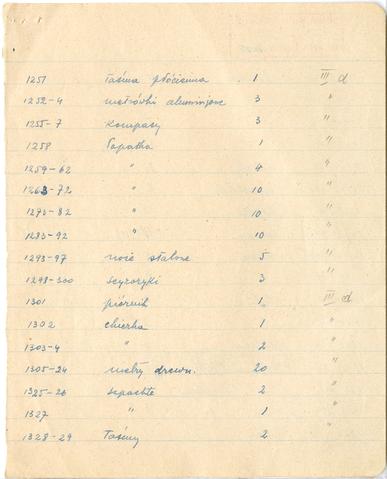 1251 taśma płócienna 1 III d
1252-4 metrówki aluminjowe 3 "
1255-7 kompasy 3 "
1258 Łopatka 1 "
1259-62 " 4 "
1263-72 " 10 "
1273-82 " 10 "
1283-92 " 10 "
1293-97 noże stalowe 5 "
1298-300 scyzoryki 3 "
1301 piórnik 1 III d
1302 ekierka 1 "
1303-4 " 2 "
1305-24 metry drewn. 20 "
1325-26 szpachle 2 "
1327 " 1 "
1328-29 Taśmy 2 "